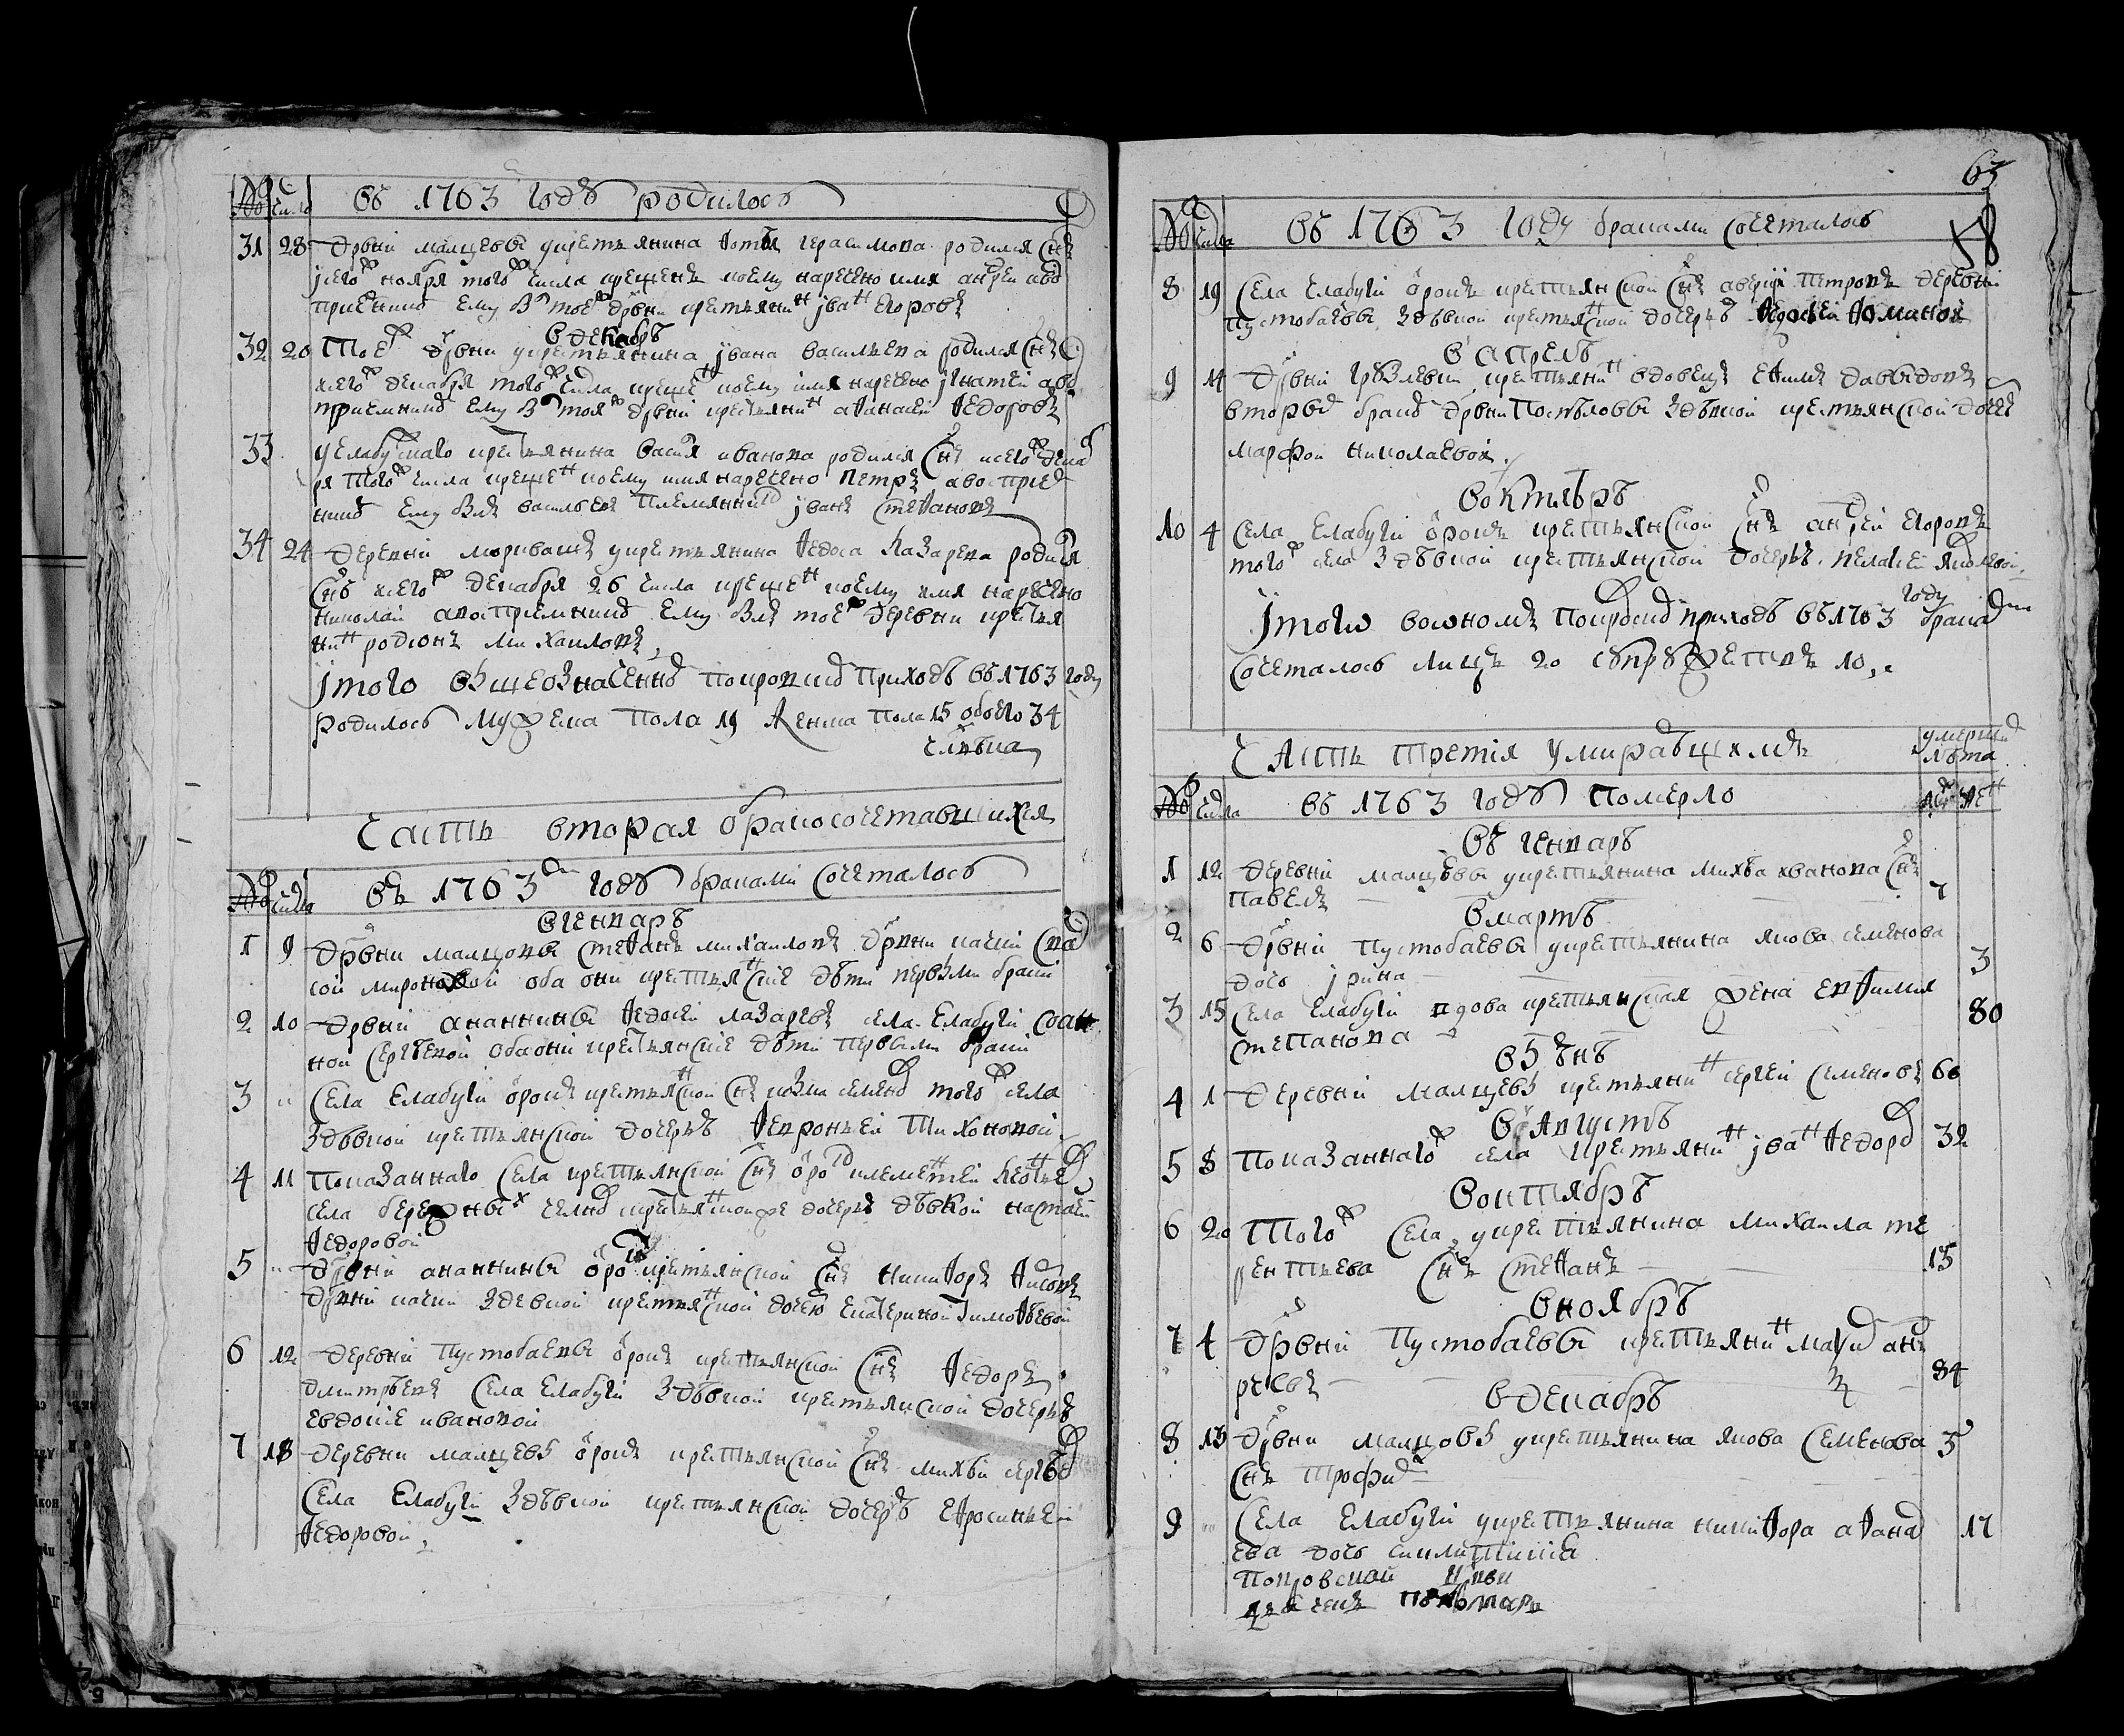 № Числа Въ 1763 годѣ родилось
31 28 Дрвни малцевы у крестьянина Фотѣя Герасимова родился снъ
сего ж ноября того ж числа крещенъ коему наречено имя Андреи а во
приемник ему бы тое ж дрвни крестьянин Iван Егоровъ
в декабрѣ
32 20 Тое ж дрвни у крестьянина Iвана Васильева родился снъ
сего ж декабря того ж числа крещен коему имя наречено Iгнатеи а во
приемник ему бы тоя ж дрвни крестьянин Афанасеи Федоровъ
33 У елабужскаго крестьянина Васил Иванова родился снъ сего ж декаб
ря того ж числа крещен коему имя наречено Петръ а воспрiем
ник ему былъ Васильевъ племянник Iванъ Стефановъ
34 24 Деревни у крестьянина Федоса Лазарева родился
снъ сего ж декабря 26 числа крещен коему имя наречено
Николаи а воспрiемник ему былъ тое ж деревни крестья
нин Родионъ Михаиловъ
Iтого въ Покровском приходѣ въ 1763 году
родилось мужеска пола 19 женска пола 15 обоего 34
члвка
Часть вторая бракосочетавшихся
№ Числа въ 1763м годѣ браками сочеталось
в генварѣ
1 9 Дрвни малцовы Стефанъ Михаиловъ дрвни
сой Мироновой оба они крестьянские дѣти первым браком
2 10 Дрвни ананнины Федосеи Лазаревъ села Елабуги с Оан
ной Сергѣевой оба они крестьянские дѣти первым браком
3 Села Елабуги отрокъ крестьянской снъ Козма Семенов того ж села
з дѣвкой крестьянской дочерью Февроньей Тихоновой
4 11 Показаннаго села крестьянской снъ отрок Клементеи
села Бережных Челнов крестьянскою же дочерью дѣвкой Настасеи
Федоровой
5 Дрвни ананнины отрок крестьянской снъ Никифоръ
дрвни з девкой крестьянской дочею Екатериной Тимофѣевой
6 12 Деревни Пустобаевы отрокъ крестьянской снъ Федоръ
Димитрѣевъ села Елабуги з дѣвкой крестьянской дочерью
Евдокие Ивановой
7 18 Деревни малцевы отрокъ крестьянской снъ Михѣи Сергѣев
села Елабуги з дѣвкой крестьянской дочерью Ефросиньеи
Федоровой
63
58
№ Числа Въ 1763 году браками сочеталось
8 19 Села Елабуги отрокъ крестьянской снъ Аверкiи Петровъ деревни
Пустобаевы з дѣвкой крестьянской дочерью
в апрелѣ
9 14 Дрвни крестьянин вдовецъ Ефимъ Давыдовъ
вторым браком дрвни Поспѣловы з дѣвкой крестьянской дочер
Марфой Николаевой
в октябрѣ
10 4 Села Елабуги отрокъ крестьянской снъ Андреи Егоровъ
того ж села з дѣвкой крестьянской дочерью Пелагеи Яковлевой
Iтого во ономъ Покровском приходѣ въ 1763 году браками
сочеталось лицъ 20 супружествъ 10
Часть третiя умирающихъ
умерших лѣта
№ Числа въ 1763 годѣ померло муж жен
въ генварѣ
1 12 Деревни малцевы у крестьянина Михѣа Иванова снъ
Павелъ 7
в мартѣ
2 6 Дрвни Пустобаевы у крестьянина Якова Семенова
дочь Iрина 3
3 15 Села Елабуги вдова крестьянская жена Евфимия
Степанова 80
в Iюнѣ
4 1 Деревни малцевы крестьянин Сергеи Семеновъ 60
в августѣ
5 8 Показаннаго ж села крестьянин Iван Федоров 32
в октябрѣ
6 20 Того ж села у крестьянина Михаила Те
рентьева снъ Стефанъ 15
в ноябрѣ
7 4 Дрвни Пустобаевы крестьянин Макси Анд
рѣевъ 84
в декабрѣ
8 13 Дрвни малцовы у крестьянина Якова Семенова 5
снъ Трофим
9 Села Елабуги у крестьянина Никифора Афанас
ева дочь 17
Покровской цркви